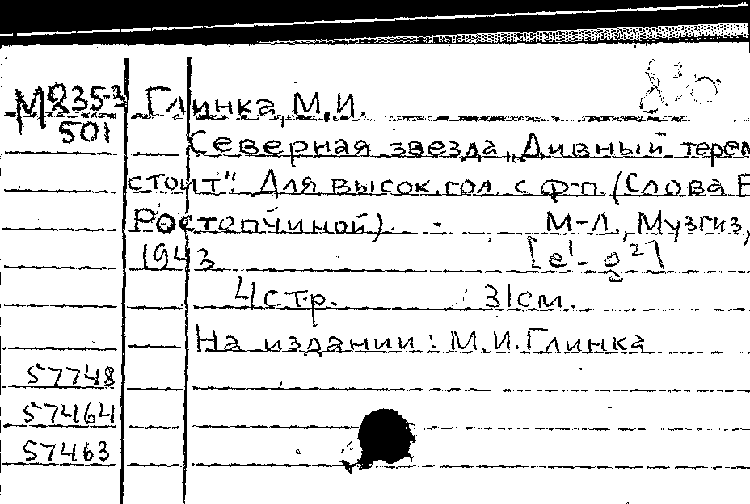 М835-3 Глинка, М.И.
501
Северная звезда „Дивный терем
стоит". Для высок. гол. с ф-п. (Слова Е
Ростопчиной) М-Л., Музгиз,
1943 [e¹- g²]
4 стр. 31 см.
На издании: М.И. Глинка
57748
57464
57463